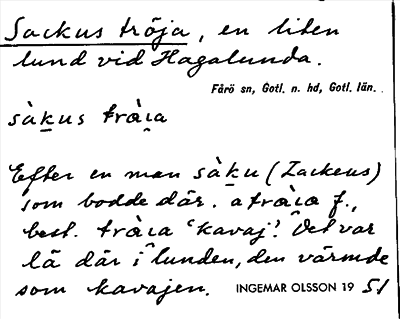 Sackus tröja, en liten
lund vid Hagalunda.
Fårö sn, Gotl. n. hd, Gotl. län.
sàkus tràia
Efter en man sàku (Zackeus)
som bodde där. a tràia f.,
best. tràia 'kavaj'. Det var
lä där i lunden, den värmde
som kavajen. INGEMAR OLSSON 19 51